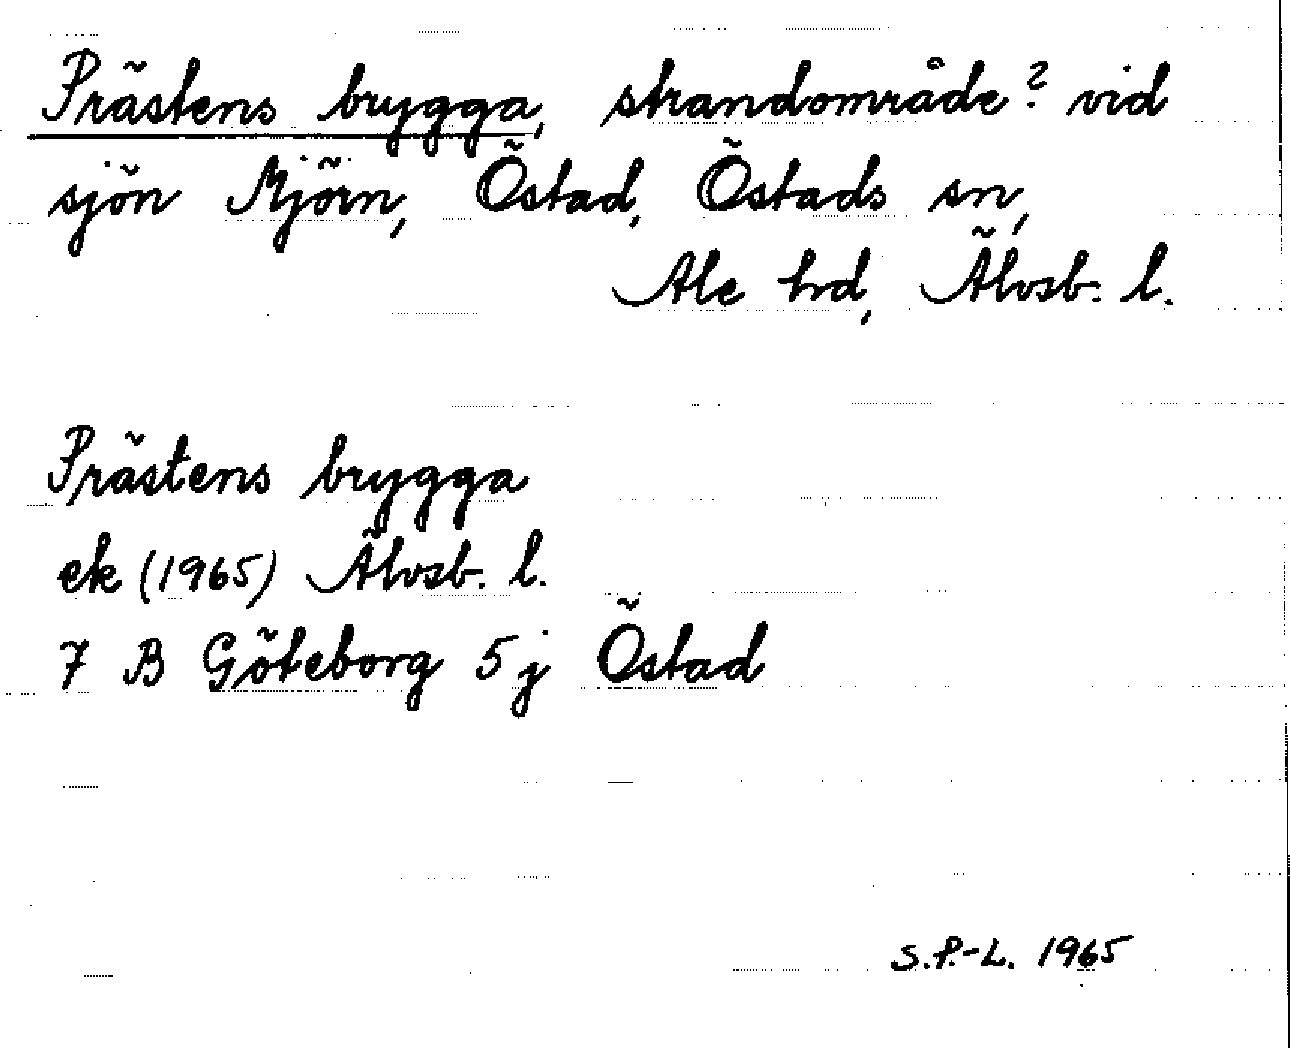 Prästens brygga, strandområde? vid
sjön Mjörn, Östad, Östads sn,
Ale hrd, Älvsb. l.
Prästens brygga
ek (1965) Älvsb. l.
7 B Göteborg 5 j Östad
S.P.-L. 1965